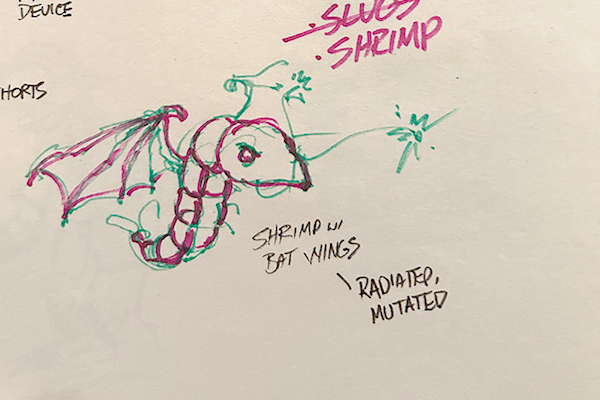 DEVICE
HORTS
SLUGS
SHRIMP
SHRIMP W/
BAT WINGS
RADIATED,
MUTATED